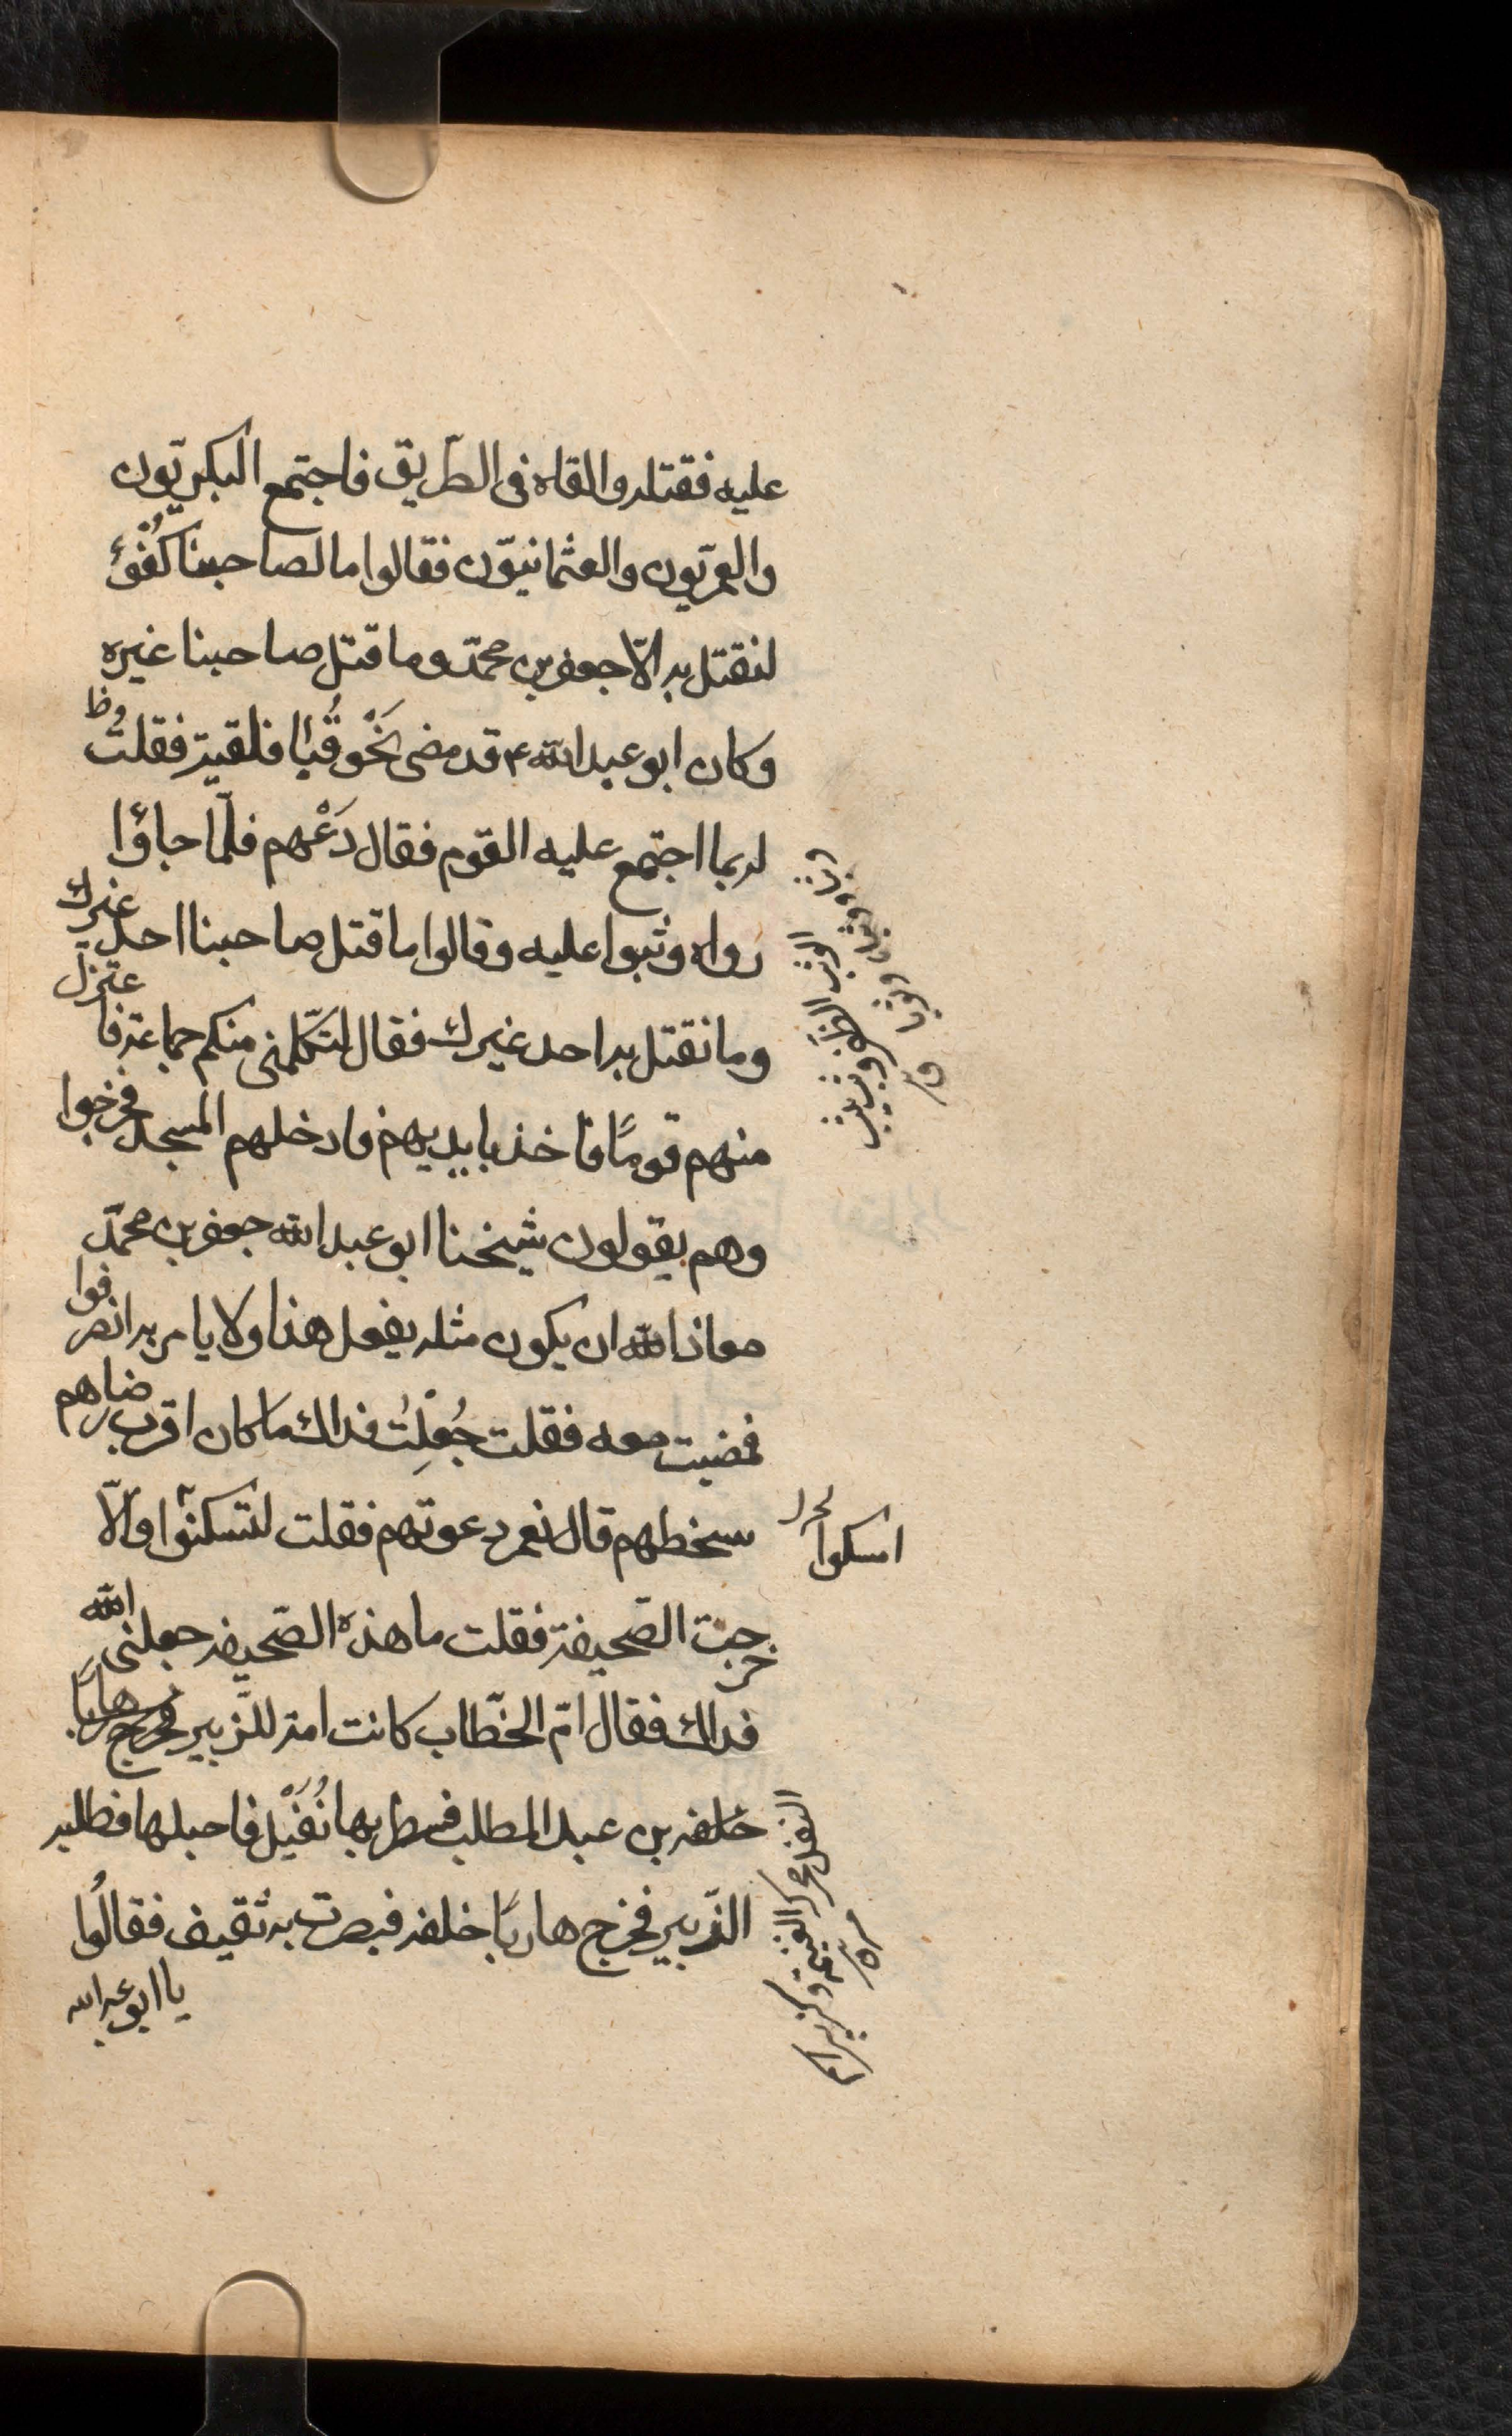 عليه فقتله والقاه فى الطّريق فاجتمع البكريّون
والعمريّون والعثمانيّون فقالوا ما لصاحبنا كُفْؤ
لنقتل به الّا جعفر بن محمّد وما قتل صاحبنا غيره
وكان ابو عبد الله ع قد مضى نَحْوَ قُبا فلقيته فقلتُ وظ
له بما اجتمع عليه القوم فقال دَعْهم فلّما جاؤا
رواه وثبوا عليه وقالوا ما قتل صاحبنا احد غيرك
وما نقتل به احد غيرك فقال لتكّلمنى منكم جماعة فاعتزل
منهم قومًا فاخذ بايديهم فادخلهم المسجد فخرجوا
وهم يقولون شيخنا ابو عبد الله جعفر بن محمّد
معاذ الله ان يكون مثله يفعل هذا ولا يامر به انصرفوا
فمضيت معه فقلت جُعِلْتُ فداك ما كان اقرب رضاهم
سخطهم قال نعم دعوتهم فقلت لتسكتوا والّا
امسكوا
خرجت الصّحيفة فقلت ما هذه الصّحيفه جعلنى الله
فداك فقال امّ الخطّاب كانت امة للّزبير فخرج هاربًا
خلفه بن عبد المطلب فسطر بها نُفَيْل فاحبلها فطلبه
الزّبير فخرج هاربًا خلفه فبصرت به ثقيف فقالُوا
يا ابو عبد الله